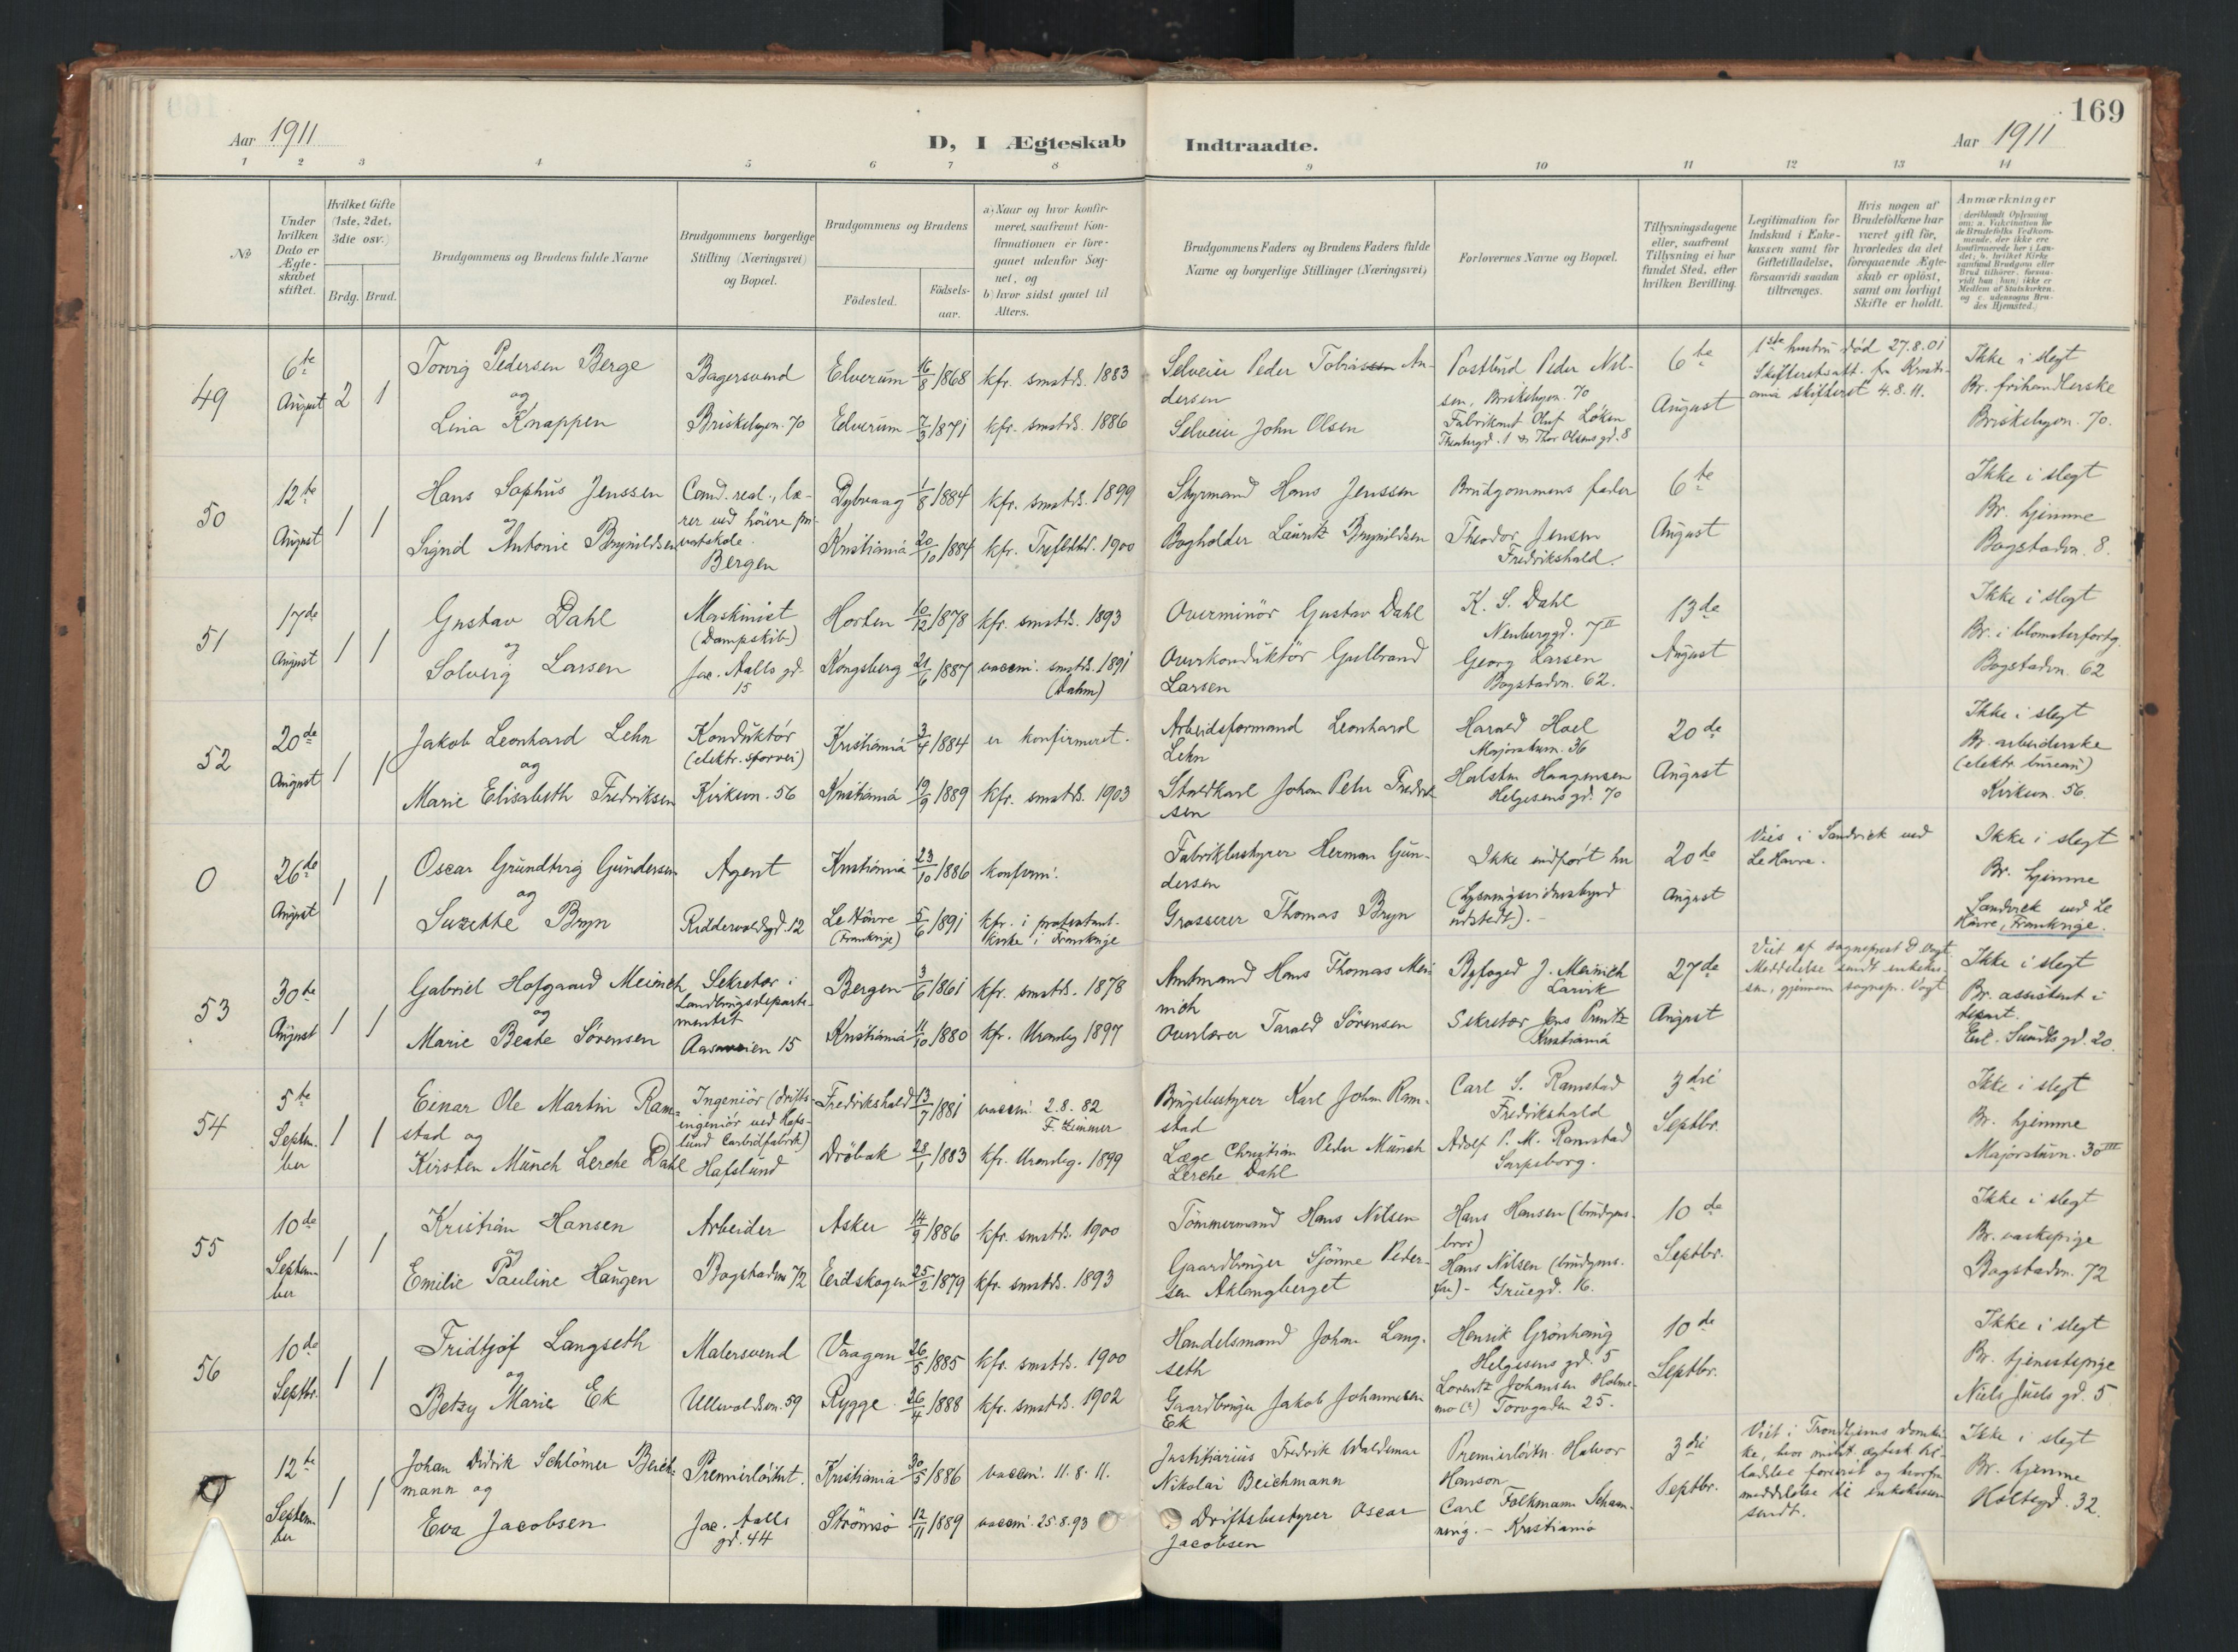 169
Aar 1911
D, I Ægteskab Indtraadte.
Aar 1911
1 2 3 4 5 6 7 8 9 10 11 12 13 14
No
Under hvilken Dato er Ægteskabet stiftet.
Hvilket Gifte (1ste, 2det, 3die osv.)
Brdg. Brud.
Brudgommens og Brudens fulde Navne
Brudgommens borgerlige Stilling (Næringsvei) og Bopæl.
Brudgommens og Brudens
Födested.
Födsels-aar.
a) Naar og hvor konfir-
meret, saafremt Kon-
firmationen er fore-
gaaet udenfor Sog-
net, og
b) hvor sidst gaaet til
Alters.
Brudgommens Faders og Brudens Faders fulde
Navne og borgerlige Stillinger (Næringsvei)
Forlovernes Navne og Bopæl.
Tillysningsdagene
eller, saafremt
Tillysning ei har
fundet Sted, efter
hvilken Bevilling.
Legitimation for
Indskud i Enke-
kassen samt for
Giftetilladelse,
forsaavidt saadan
tiltrænges.
Hvis nogen af
Brudefolkene har
været gift för,
hvorledes da det
foregaaende Ægte-
skab er oplöst,
samt om lovligt
Skifte er holdt.
Anmærkninger
49
6te August
2 1
Torvig Pedersen Berge
og
Lina Knappen
Bagersvend
Briskebyvn. 70
Elverum 16/8 1868 kfr. smstds. 1883
Elverum 7/3 1871 kfr. smstds. 1886
Selveier Peder Tobiassen An-
dersen
Selveier John Olsen
Postbud Peder Nil-
sen, Briskebyvn. 70
Fabrikant Oluf Löken
Thor Olsens gd. 8
6te August
1ste hustru död 27.8.01
Skifteretsatt. fra Kristi-
ania skifteret 4.8.11.
Ikke i slegt
Br. frihandlerske
Briskebyvn. 70.
50
12te August
1 1
Hans Sophus Jenssen
og
Signid Antonie Brynildsen
Cand. real., læ-
rer ved höiere pri-
vatskole.
Bergen
Dybvaag 1/8 1884 kfr. smstds. 1899
Kristiania 20/10 1884 kfr. Trefoldhd. 1900
Styrmand Hans Jenssen
Bogholder Lauritz Brynildsen
Brudgommens fader
Theodor Jensen
Fredrikshald.
6te August
Ikke i slegt
Br. hjemme
Bogstadvn. 8.
51
17de August
1 1
Gustav Dahl
og
Solveig Larsen
Maskinist
(Dampskib)
Jac. Aalls gd.
15
Horten 10/12 1878 kfr. smstds. 1893
Kongsberg 21/6 1887 vaccin. smstds. 1891
(Dahm)
Overminör Gustav Dahl
Overkonduktör Gulbrand
Larsen
K. S. Dahl
Neuberggd. 7 II
Georg Larsen
Bogstadvn. 62.
13de August
Ikke i slegt
Br. i blomsterforrtg.
Bogstadvn. 62
52
20de August
1 1
Jakob Leonhard Lehn
og
Marie Elisabeth Fredriksen
Konduktör
(elektr. sporvei)
Kirkevn. 56
Kristiania 3/4 1884 er konfirmeret.
Kristiania 19/9 1889 kfr. smstds. 1903
Arbeidsformand Leonhard
Lehn
Staldkarl Johan Peter Fredrik-
sen
Harald Hoel
Majorstuvn. 36
Halsten Haagensen
Helgesens gd. 70
20de August
Ikke i slegt
Br. arbeiderske
(elektr. bureau)
Kirkevn. 56.
0
26de August
1 1
Oscar Grundtvig Gundersen
og
Suzette Bryn
Agent
Riddervoldsgd. 12
Kristiania 23/10 1886 konfirm.
Le Havre
(Frankrige) 5/6 1891 kfr. i protestant.
kirke i Frankrige
Fabrikbestyrer Herman Gun-
dersen
Grosserer Thomas Bryn
Ikke indfört her
(Lysningsvidnesbyrd
udstedt). -
20de August
Vies i Sandvick ved
Le Havre.
Ikke i slegt
Br. hjemme
Sandvick ved Le
Havre, Frankrige.
53
30te August
1 1
Gabriel Hofgaard Meinich
og
Marie Beate Sörensen
Sekretær i
Landbrugsdeparte-
mentet
Aasaveien 15
Bergen 3/6 1861 kfr. smstds. 1878
Kristiania 11/10 1880 kfr. Uranbg 1897
Amtmand Hans Thomas Mei-
nich
Overlærer Tarald Sörensen
Byfoged J. Meinich
Larvik
Sekretær Jens Puntz
Kristiania
27de August
Viet af sogneprest D. Vogt
Meddelelse sendt enkekas-
sen, gjennem sognepr. Vogt
Ikke i slegt
Br. assistent i
depart.
Eil. Sundts gd. 20.
54
5te Septem-
ber
1 1
Einar Ole Martin Ram-
stad og
Kirsten Münch Lerche Dahl
Ingeniör (drifts-
ingeniör ved Hafs-
lund Carbidfabrik)
Hafslund
Fredrikshald 13/7 1881 vaccin. 2.8.82
F. Zimmer
Dröbak 28/1 1883 kfr. Uranbg. 1899
Brugsbestyrer Karl Johan Ram-
stad
Læge Christian Peder Münch
Lerche Dahl
Carl S. Ramstad
Fredrikshald
Adolf P. M. Ramstad
Sarpsborg.
3die Septbr.
Ikke i slegt
Br. hjemme
Majorstuvn. 30 III
55
10de Septem-
ber
1 1
Kristian Hansen
og
Emilie Pauline Haugen
Arbeider
Bogstadvn 72
Asker 14/9 1886 kfr. smstds. 1900
Eidskogen 25/2 1879 kfr. smstds. 1893
Tömmermand Hans Nilsen
Gaardbruger Sjönne Peder-
sen Aklangberget
Hans Hansen (brudgms.
bror)
Hans Nilsen (brudgms.
far) - Gruegd. 16.
10de Septbr.
Ikke i slegt
Br. vaskepige
Bogstadvn. 72
56
10de Septbr.
1 1
Fridtjof Langseth
og
Betzy Marie Ek
Malersvend
Ullevoldsvn. 59
Vaagan 26/5 1885 kfr. smstds. 1900
Rygge 26/4 1888 kfr. smstds. 1902
Handelsmand Johan Lang-
seth
Gaardbruger Jakob Johannesen
Ek
Henrik Grönhaug
Helgesens gd. 5
Lorentz Johansen Holme-
mo (?) Torvgaden 25.
10de Septbr.
Ikke i slegt
Br. tjenestepige
Niels Juels gd. 5
0
12te Septem-
ber
1 1
Johan Didrik Schlömer Beich-
mann og
Eva Jacobsen
Premierlöitnt.
Jac. Aalls
gd. 44
Kristiania 30/5 1886 vaccin. 11.8.11.
Strömsö 12/11 1889 vaccin. 25.8.93
Justitiarius Fredrik Waldemar
Nikolai Beichmann
Driftsbestyrer Oscar
Jacobsen
Premierlöitn. Halvor
Hanson
Carl Folkmann Schaan-
ning. - Kristiania
3die Septbr.
Viet i Trondhjems domkir-
ke, hvor milit. ægtesk. til-
ladelse forevist og hvorfra
meddelelse til enkekassen
sendt.
Ikke i slegt
Br. hjemme
Holtegd. 32.